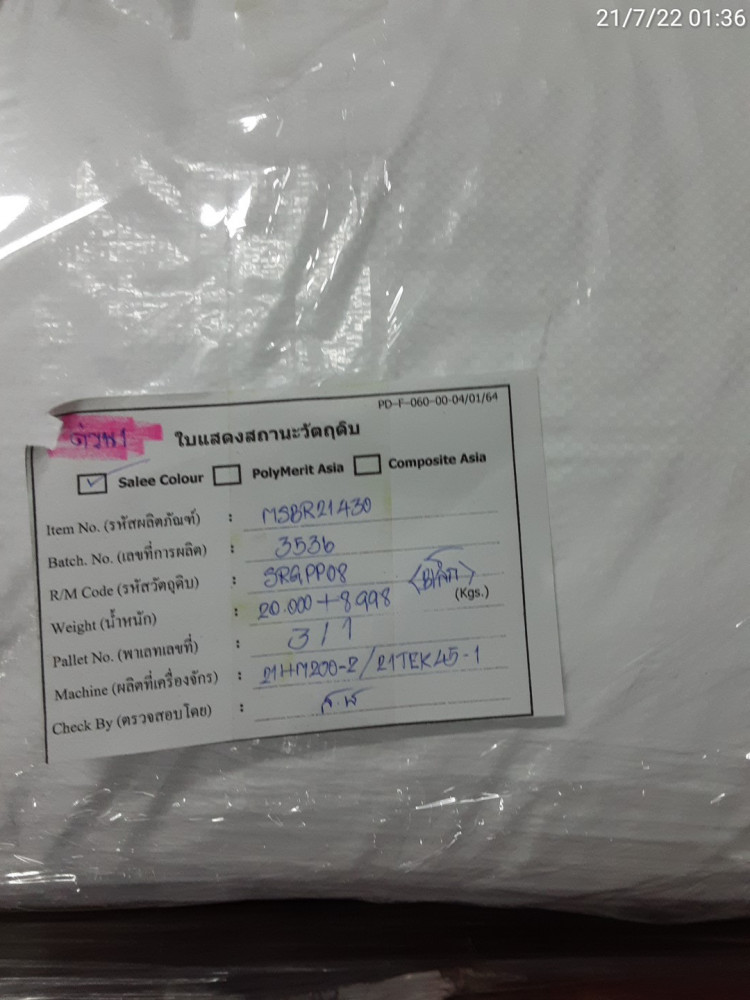 21/7/22 01:36
PD-F-060-00-04/01/64
ด่วน1
ใบแสดงสถานะวัตถุดิบ
Salee Colour PolyMerit Asia Composite Asia
Item No. (รหัสผลิตภัณฑ์) : MSBR21430
Batch. No. (เลขที่การผลิต) : 3536
R/M Code (รหัสวัตถุดิบ) : SRGPP08
Weight (น้ำหนัก) : 20.000+8.998 (Kgs.)
Pallet No. (พาเลทเลขที่) : 3/1
Machine (ผลิตที่เครื่องจักร) : 21HM200-2/21TEK45-1
Check By (ตรวจสอบโดย) :